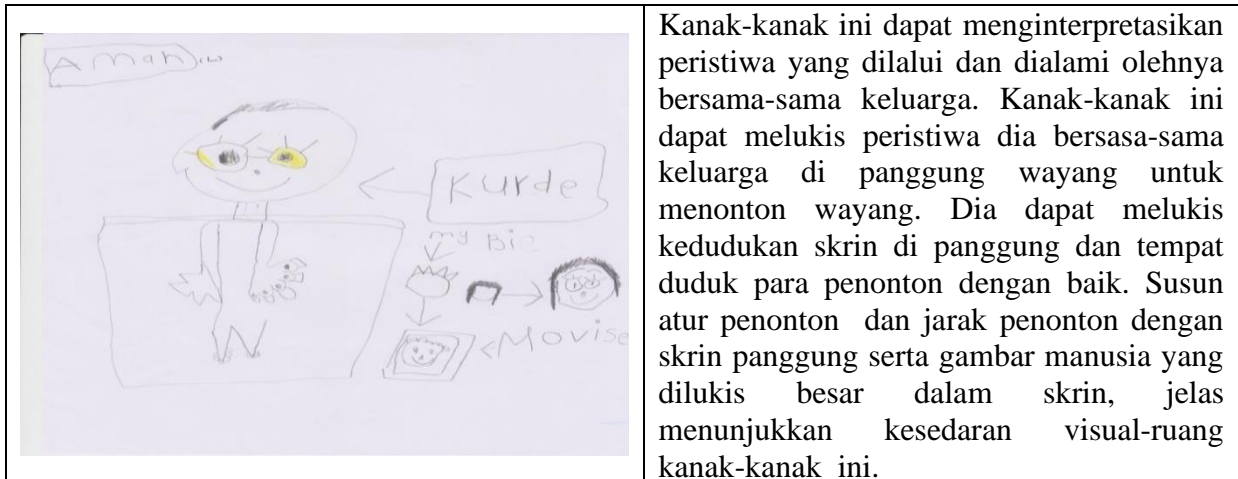 Aman
Kurde
my Bic
Movise
Kanak-kanak ini dapat menginterpretasikan
peristiwa yang dilalui dan dialami olehnya
bersama-sama keluarga. Kanak-kanak ini
dapat melukis peristiwa dia bersasa-sama
keluarga di panggung wayang untuk
menonton wayang. Dia dapat melukis
kedudukan skrin di panggung dan tempat
duduk para penonton dengan baik. Susun
atur penonton dan jarak penonton dengan
skrin panggung serta gambar manusia yang
dilukis besar dalam skrin, jelas
menunjukkan kesedaran visual-ruang
kanak-kanak ini.